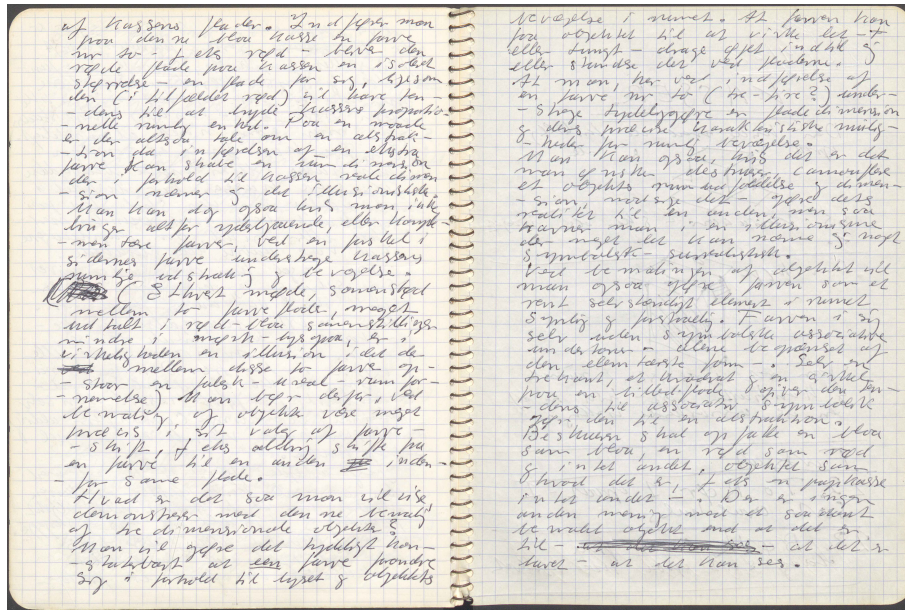 af kassens flader. Indfører man
paa denne blaa kasse en farve
nr to f eks rød - bliver den
røde flade paa kassen en isoleret
størrelse - en flade for sig, ligesom
den (i tilfældet rød) vil have ten-
- dens til at bryde kassens proportio-
nelle rumlig enhed. Paa en maade
er der altsaa tale om en abstrak-
- tion da indførelsen af en ekstra
farve kan skabe en rumdimension
der i forhold til kassens reale dimen
sion nærmer sig det illusionistiske.
Man kan dog ogsaa hvis man ikke
bruger altfor yderligtgaaende, eller komple-
- mentære farver, ved en forskel i
sidernes farve understrege kassens
rumlige udstrækning og bevægelse.
( Ethvert møde, sammenstød
mellem to farveflader, meget
udtalt i rød-blaa sammenstillinger
mindre i mørk-lysgraa, er i
virkeligheden en illusion idet der
mellem disse to farver op-
- staar en falsk - ureal - rumfor-
- nemmelse) Man bør derfor, ved
bemaling af objekter være meget
præcis i sit valg af farve-
- skift, f eks aldrig skifte fra
en farve til en anden inden-
- for samme flade.
Hvad er det saa man vil vise
demonstrere med denne bemaling
af tredimensionale objekter?
Man vil gøre det tydeligt kon-
- staterbart at een farve forandrer
sig i forhold til lyset og objektets
bevægelse i rummet. At farven kan
faa objektet til at virke let -
eller tungt - drage øjet indtil
eller standse det ved fladerne.
At man, her ved indførelse af
en farve nr to (tre-fire?) under-
- strege tydeliggøre en fladedimension
og dens præcise karakteristiske mulig-
- heder for rumlig bevægelse.
Man kan ogsaa, hvis det er det
man ønsker destruere, camouflere
et objekts rumudfoldelse og dimen-
- sion, modsige det - gøre dets
realitet til en anden, men saa
havner man i en illusionisme
der meget let kan nærme sig noget
symbolsk - surrealistisk.
Ved bemalingen af objektet vil
man ogsaa gøre farven som et
rent selvstændigt element i rummet
synlig og forstaaelig. Farven i sig
selv uden symbolske associative
undertoner - alene begrænset af
den elementære form. Selv en
trekant, et kvadrat og en cirkel
paa en billedflade giver den ten-
- dens til associativ symbolik
gør den til en abstraktion.
Beskueren skal opfatte en blaa
som blaa, en rød som rød
og intet andet, objektet som
hvad det er, f eks en papkasse
intet andet - Der er ingen
anden mening med et saadant
bemalet objekt end at det er
til - at det er
lavet - at det kan ses.